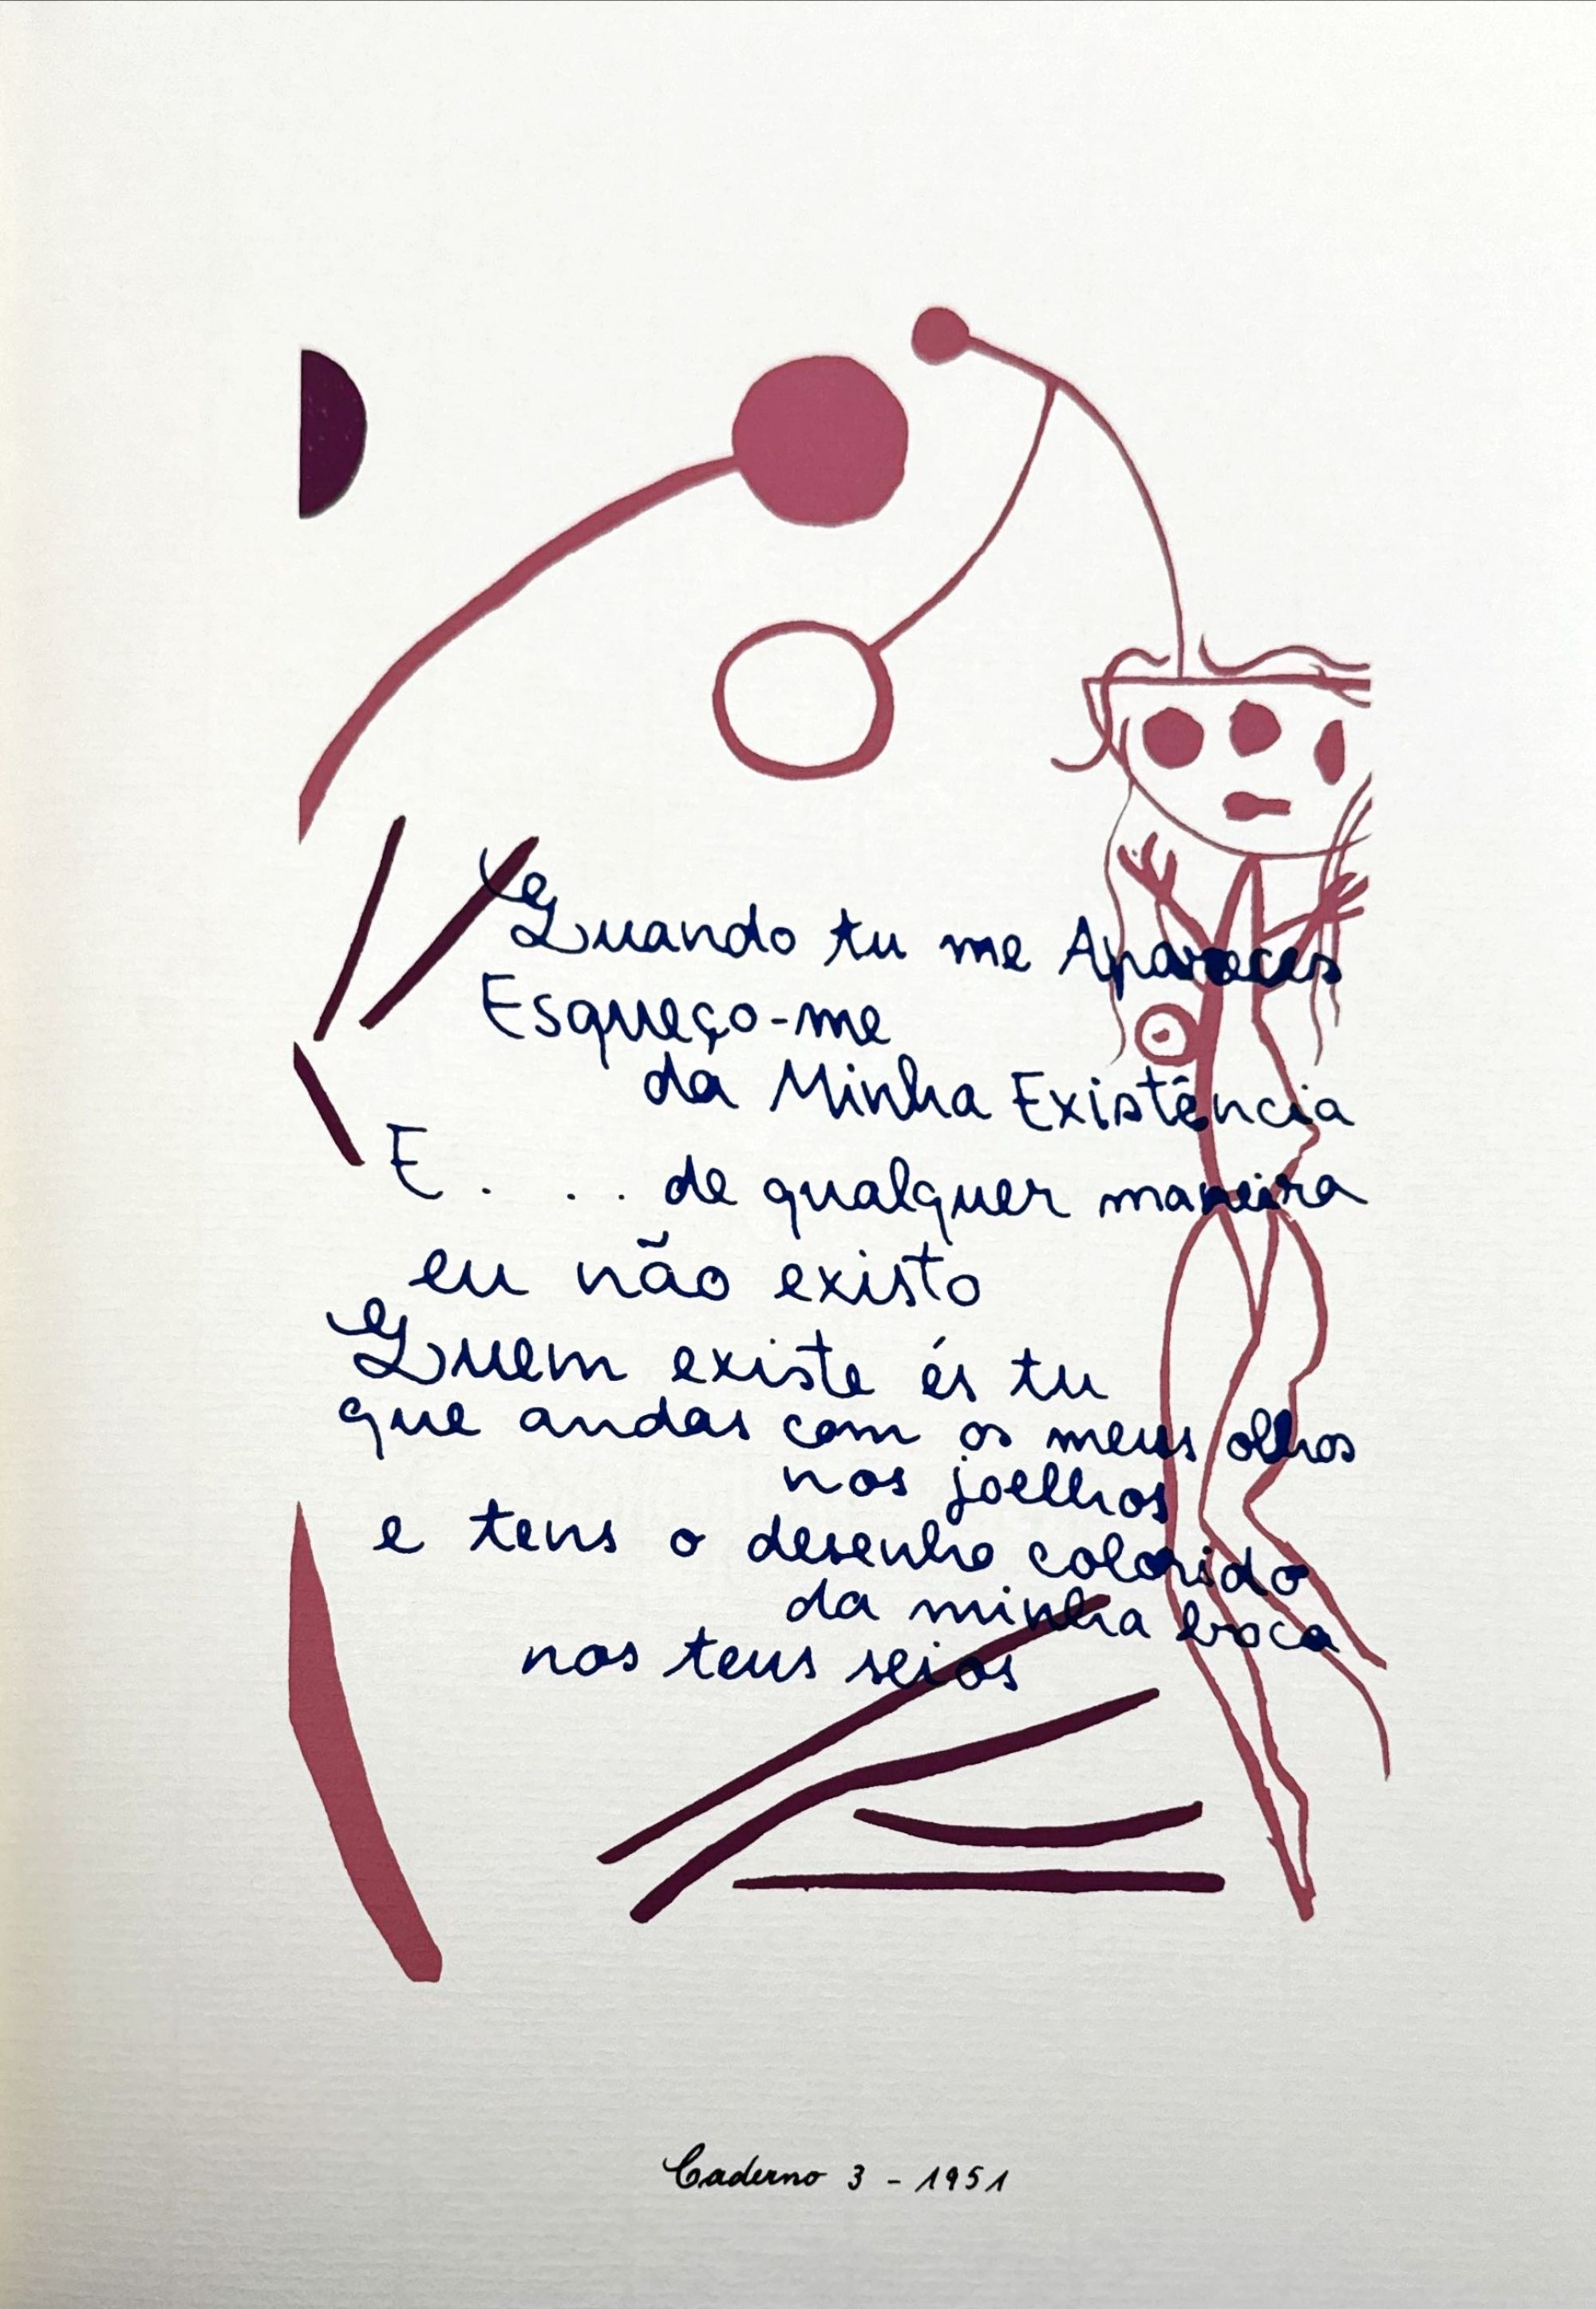 Quando tu me Apareces
Esqueço-me
da Minha Existência
E . . . de qualquer maneira
eu não existo
Quem existe és tu
que andas com os meus olhos
nos joelhos
e tens o desenho colorido
da minha boca
nos teus seios
Caderno 3 - 1951